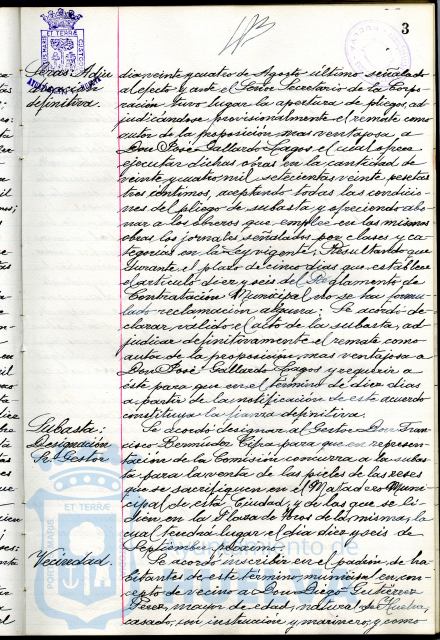 3
Obras: Adju
definitiva.
dia veinte y cuatro de Agosto último señalado
al efecto y ante el Señor Secretario de la Corpo-
ración tuvo lugar la apertura de pliegos, ad-
judicándose provisionalmente el remate como
autor de la proposición mas ventajosa a
Don José Gallardo Lagos el cual ofrece
ejecutar dichas obras en la cantidad de
veinte y cuatro mil setecientas veinte pesetas
tres céntimos, aceptando todas las condicio-
nes del pliego de subasta y ofreciendo abo-
nar a los obreros que emplée en las mismas
obras los jornales señalados por clases y ca-
tegorias en la Ley vigente; Resultando que
durante el plazo de cinco dias que establece
el artículo diez y seis del Reglamento de
Contratación Municipal no se ha formu-
lado reclamación alguna; Se acordó de-
clarar válido el acto de la subasta, ad-
judicar definitivamente el remate como
autor de la proposición mas ventajosa a
Don José Gallardo Lagos y requerir a
éste para que en el término de diez dias
a partir de la notificación de este acuerdo
constituya la fianza definitiva.
Subasta:
Designación
Sr. Gestor
Se acordó designar al Gestor Don Fran-
cisco Bermúdez para que en represen-
tación de la Comisión concurra a la subas-
ta para la venta de las pieles de las reses
que se sacrifiquen en el Matadero Muni-
cipal de esta Ciudad, y de las que se li-
dien en la Plaza de Toros de la misma, la
cual tendrá lugar el dia diez y seis de
Septiembre próximo.
Vecindad.
Se acordó inscribir en el padrón de ha-
bitantes de este término municipal en con-
cepto de vecino a Don Diego Gutiérrez
Pérez, mayor de edad, natural de Huelva,
casado, con instrucción y marinero, y como
Ayuntamiento de
PORTUS MARIS ET TERRÆ CUSTODIA